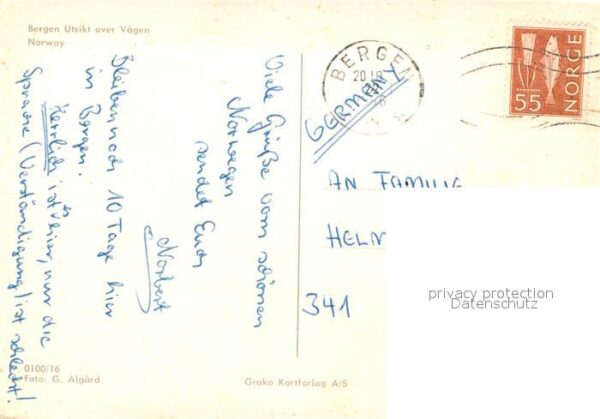 Bergen Utsikt over Vågen
Norway
Viele Grüße vom schönen
Norwegen
sendet Euch
Norbert
Bleiben noch 10 Tage hier
in Bergen.
Herrlich ist es hier, nur die
Sprache (Verständigung) ist schlecht!
BERGEN
20
NORGE
55
GERMANY
AN FAMILIE
HELN
341
privacy protection
Datenschutz
0100/16
Foto: G. Algård
Grako Kortforlag A/S